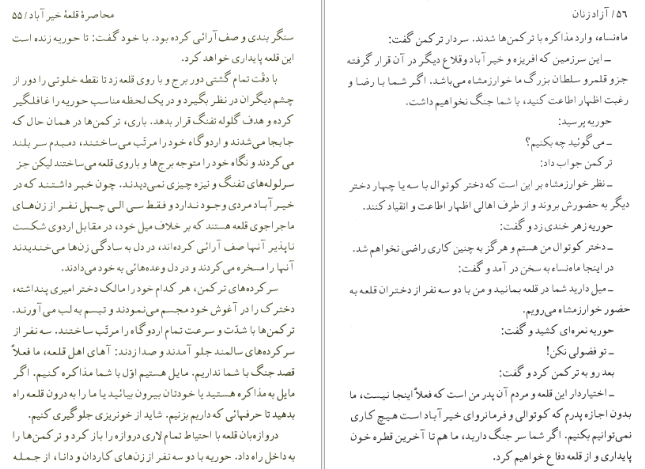 محاصرهٔ قلعهٔ خیر آباد / ۵۵
سنگر بندی و صف آرائی کرده بود. با خود گفت: تا حوریه زنده است
این قلعه پایداری خواهد کرد.
با دقت تمام گشتی دور برج و با روی قلعه زد تا نقطه خلوتی را دور از
چشم دیگران در نظر بگیرد و در یک لحظه مناسب حوریه را غافلگیر
کرده و هدف گلوله تفنگ قرار بدهد. باری، ترکمن‌ها در همان حال که
جابجا می‌شدند و اردوگاه خود را مرتّب می‌ساختند، دمبدم سر بلند
می‌کردند و نگاه خود را متوجه برج‌ها و باروی قلعه می‌ساختند لیکن جز
سرلوله‌های تفنگ و نیزه چیزی نمی‌دیدند. چون خبر داشتند که در
خیر آباد مردی وجود ندارد و فقط سی الی چهل نفر از زن‌های
ماجراجوی قلعه هستند که بر خلاف میل خود، در مقابل اردوی شکست
ناپذیر آنها صف آرائی کرده‌اند، در دل به سادگی زن‌ها می‌خندیدند
آنها را مسخره می‌کردند و در دل وعده‌هائی به خود می‌دادند.
سرکرده‌های ترکمن، هر کدام خود را مالک دختر امیری پنداشته،
دخترک را در آغوش خود مجسم می‌نمودند و تبسم به لب می‌آورند.
ترکمن‌ها با شدّت و سرعت تمام اردوگاه را مرتّب ساختند. سه نفر از
سرکرده‌های سالمند جلو آمدند و صدا زدند: آهای اهل قلعه، ما فعلاً
قصد جنگ با شما نداریم. مایل هستیم اوّل با شما مذاکره کنیم. اگر
مایل به مذاکره هستید یا خودتان بیرون بیائید یا ما را به درون قلعه راه
بدهید تا حرفهائی که داریم بزنیم. شاید از خونریزی جلوگیری کنیم.
دروازه‌بان قلعه با احتیاط تمام لای دروازه را باز کرد و ترکمن‌ها را
به داخل راه داد. حوریه با دو سه نفر از زن‌های کاردان و دانا، از جمله
۵۶ / آزاد زنان
ماه‌نساء، وارد مذاکره با ترکمن‌ها شدند. سردار ترکمن گفت:
ــ این سرزمین که افریزه و خیر آباد و قلاع دیگر در آن قرار گرفته
جزو قلمرو سلطان بزرگ ما خوارزمشاه می‌باشد. اگر شما با رضا و
رغبت اظهار اطاعت کنید، با شما جنگ نخواهیم داشت.
حوریه پرسید:
ــ می‌گوئید چه بکنیم؟
ترکمن جواب داد:
ــ نظر خوارزمشاه بر این است که دختر کوتوال با سه یا چهار دختر
دیگر به حضورش بروند و از طرف اهالی اظهار اطاعت و انقیاد کنند.
حوریه زهر خندی زد و گفت:
ــ دختر کوتوال من هستم و هرگز به چنین کاری راضی نخواهم شد.
در اینجا ماه‌نساء به سخن در آمد و گفت:
ــ میل دارید شما در قلعه بمانید و من با دو سه نفر از دختران قلعه به
حضور خوارزمشاه می‌رویم.
حوریه نعره‌ای کشید و گفت:
ــ تو فضولی نکن!
بعد رو به ترکمن کرد و گفت:
ــ اختیاردار این قلعه و مردم آن پدر من است که فعلاً اینجا نیست، ما
بدون اجازه پدرم که کوتوالی و فرمانروای خیر آباد است هیچ کاری
نمی‌توانیم بکنیم. اگر شما سر جنگ دارید، ما هم تا آخرین قطره خون
پایداری و از قلعه دفاع خواهیم کرد.